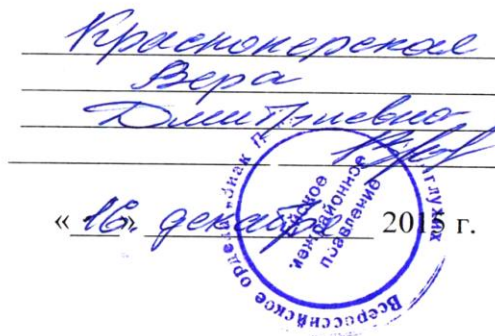 Красноперская
Вера
Дмитриевна
«16» декабря 2015 г.
Всероссийское орде "Знак П глухих
йское
межрайонное
правление